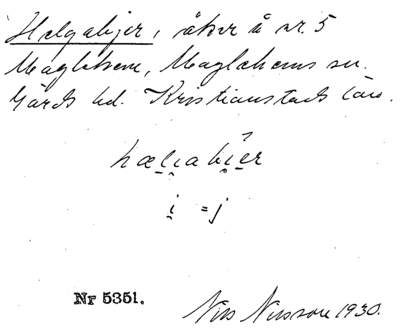 Helgabjer, åker å nr. 5
Maglehem, Maglehems sn.
Gärds hd. Kristianstads län.
hæliabier
i̯ = j
Nr 5351.
Nils Nilsson 1930.